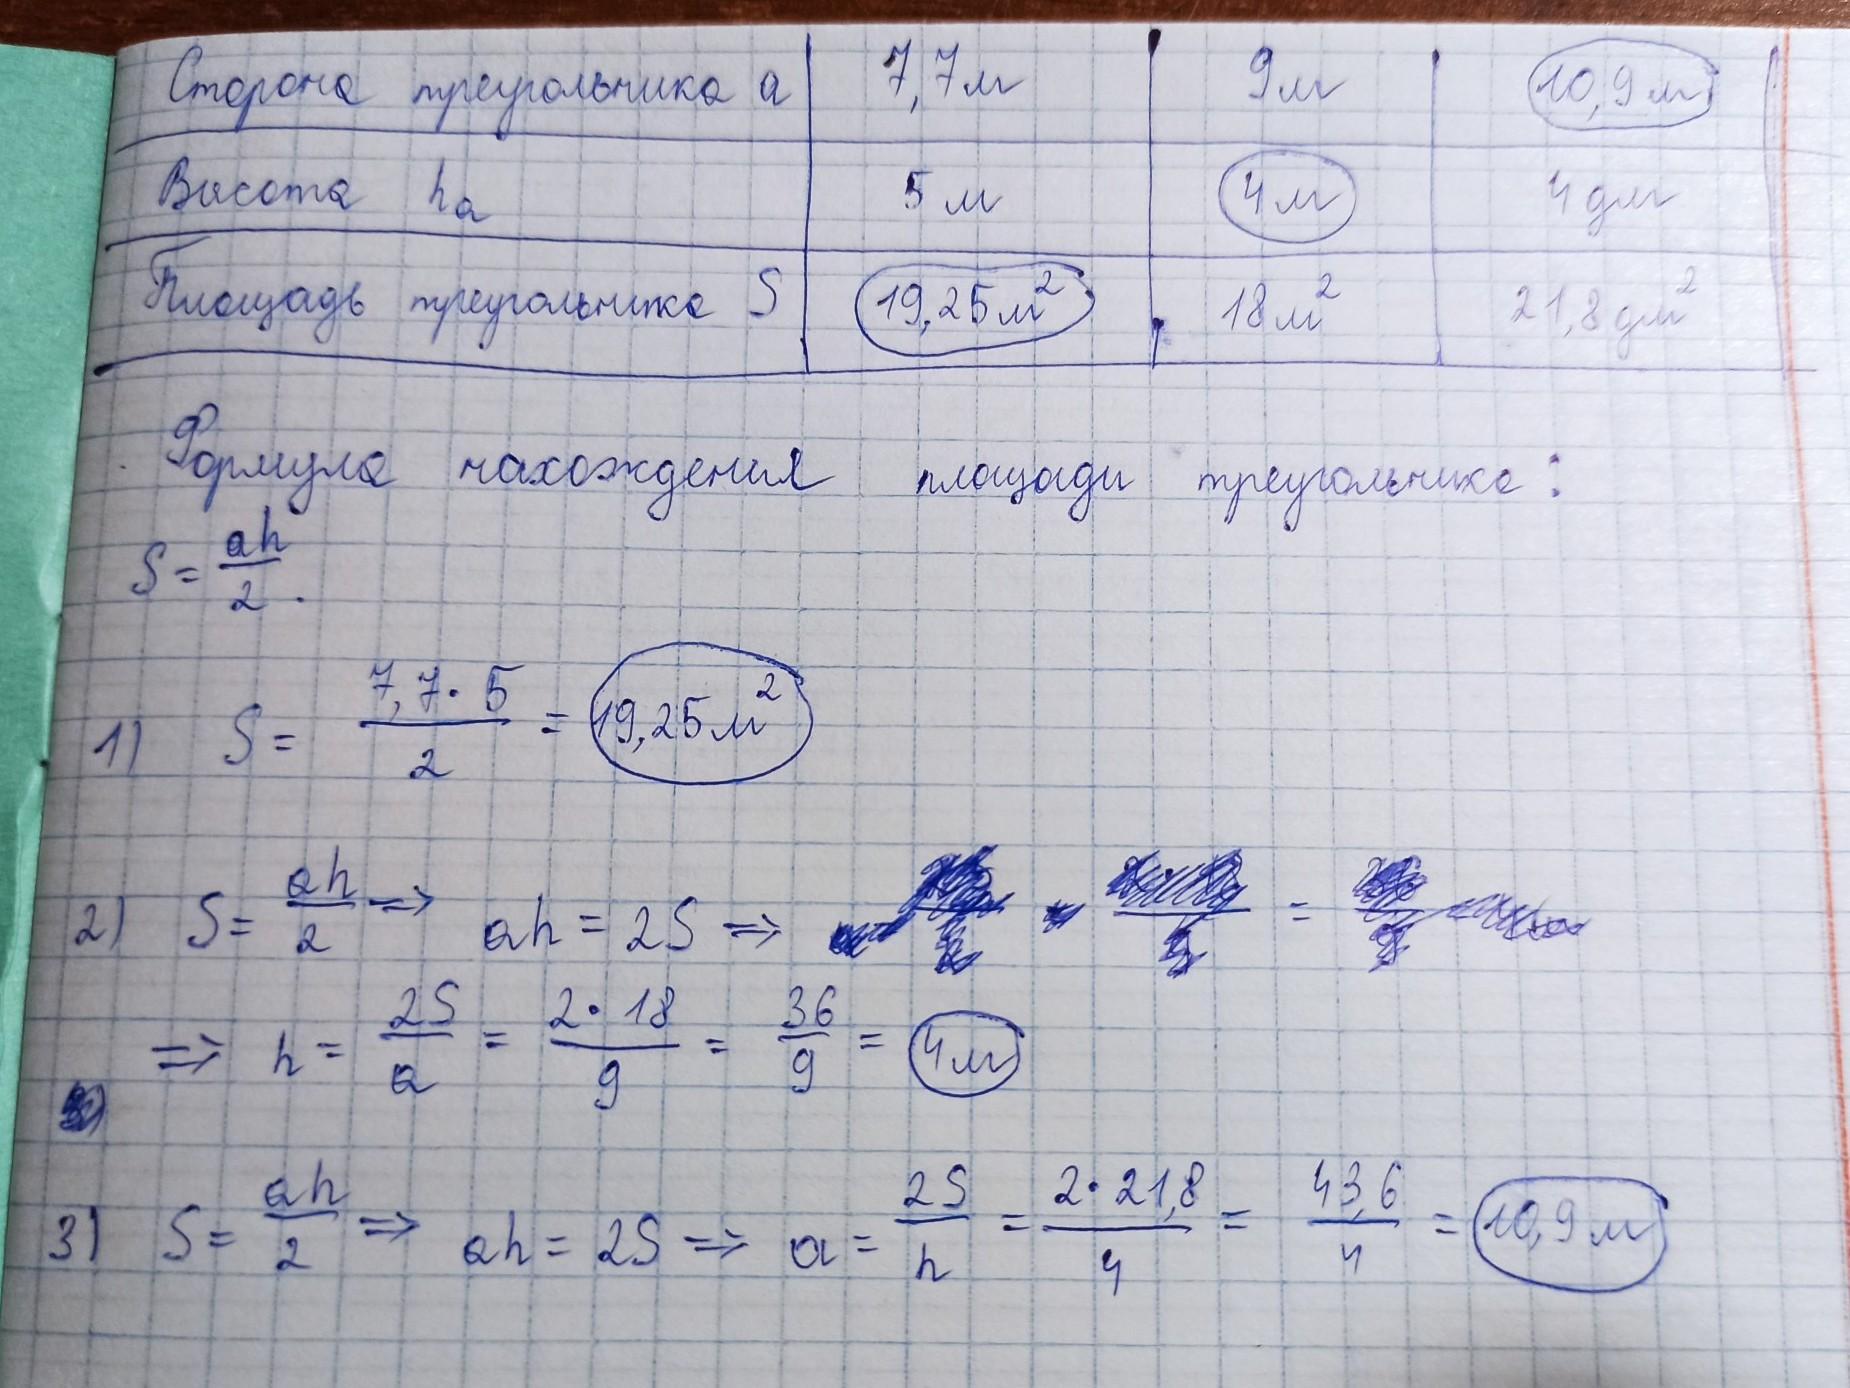 Сторона треугольника a 7,7м 9м 10,9м
Высота hₐ 5м 4м 4дм
Площадь треугольника S 19,25м² 18м² 21,8дм²
Формула нахождения площади треугольника:
S = ah/2.
1) S = 7,7·5/2 = 19,25м²
2) S = ah/2 => ah = 2S =>
=> h = 2S/a = 2·18/9 = 36/9 = 4м
3) S = ah/2 => ah = 2S => a = 2S/h = 2·21,8/4 = 43,6/4 = 10,9м